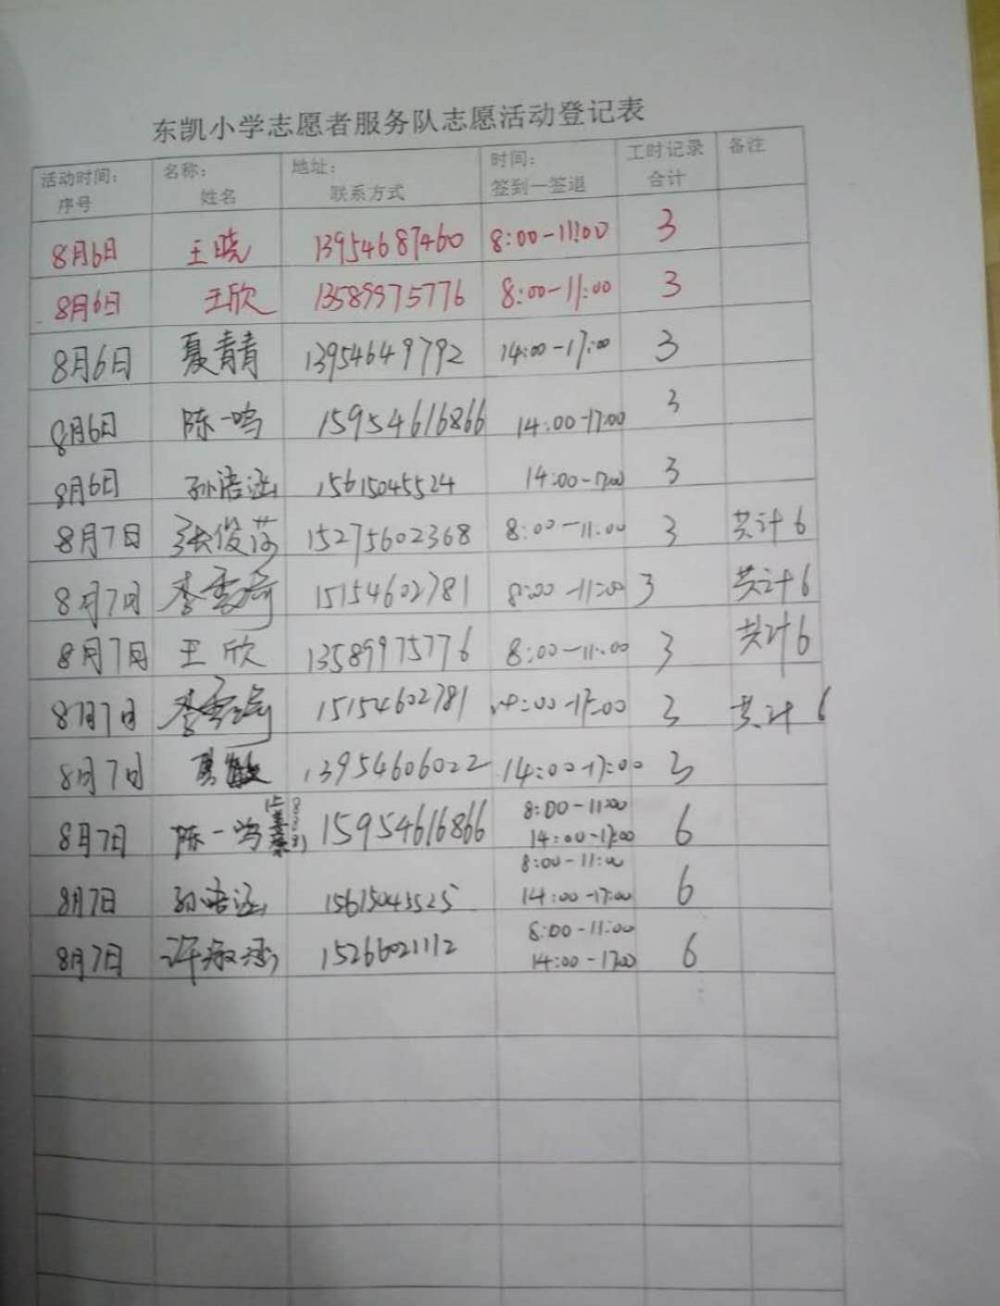 东凯小学志愿者服务队志愿活动登记表
活动时间： 名称： 地址： 时间： 工时记录 备注
序号 姓名 联系方式 签到—签退 合计
8月6日 王晓 13954687460 8:00-11:00 3
8月6日 王欣 13589975776 8:00-11:00 3
8月6日 夏青青 13954649792 14:00-17:00 3
8月6日 陈一鸣 15954616866 14:00-17:00 3
8月6日 孙浩涵 15615045524 14:00-17:00 3
8月7日 张俊莎 15275602368 8:00-11:00 3 共计6
8月7日 李 15154602781 8:00-11:00 3 共计6
8月7日 王欣 13589975776 8:00-11:00 3 共计6
8月7日 李 15154602781 14:00-17:00 3 共计6
8月7日 13954606022 14:00-17:00 3
8月7日 陈一鸣 15954616866 8:00-11:00 6
14:00-17:00
8月7日 孙浩涵 15615045525 8:00-11:00 6
14:00-17:00
8月7日 许淑涵 15266021112 8:00-11:00 6
14:00-17:00